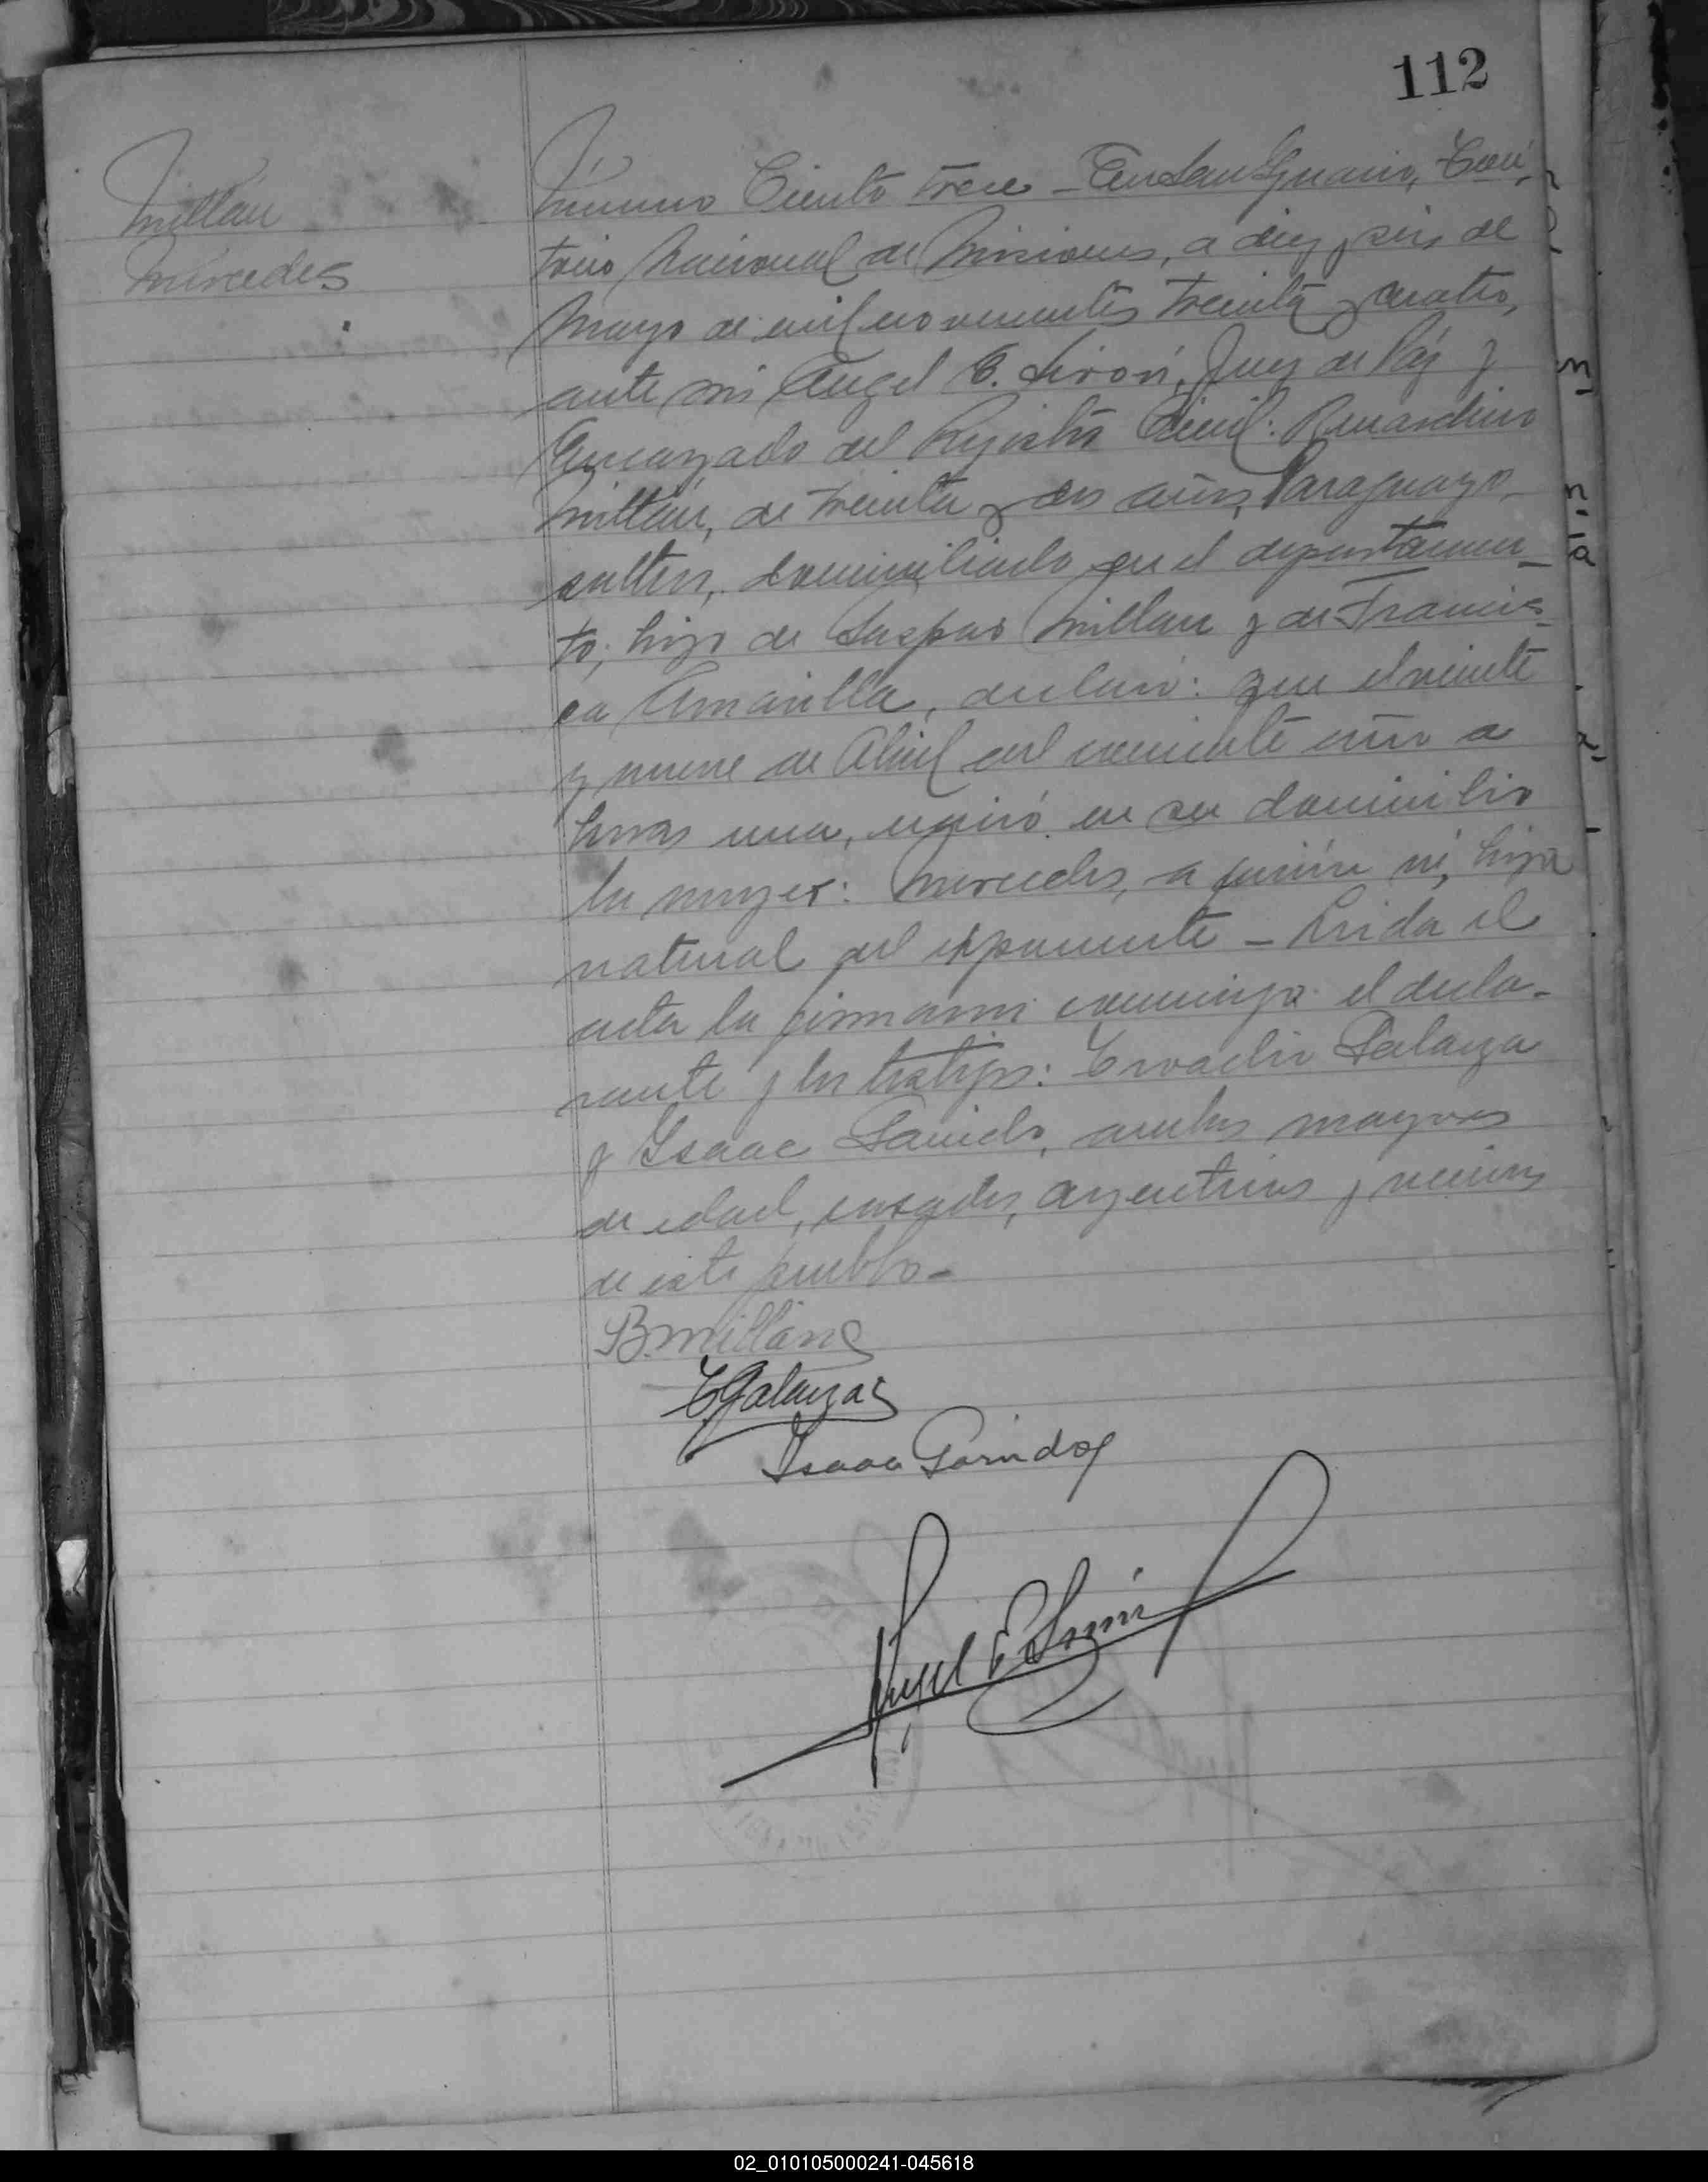 112
Millán
Mercedes
Número Ciento trece - En San Ignacio, Terri-
torio Nacional de Misiones, a diez y seis de
Mayo de mil novecientos treinta y cuatro,
ante mi Angel E. Girón, Juez de Páz y
Encargado del Registro Civil: Bernardino
Millán, de treinta y dos años, Paraguayo,
soltero, domiciliado en el departamen-
to; hijo de Gaspar Millan y de Francis-
ca Amarilla, declaró: que el veinte
y nueve de Abril del corriente año a
horas una, nació en su domicilio
la mujer: Mercedes, a quién ví, hija
natural del exponente - Leida el
acta la firmaron conmigo el decla-
rante y los testigos: Galarza
y Isaac Garrido, ambos mayores
de edad, casados, argentinos y vecinos
de este pueblo -
B. Millan
E Galarza
Isaac Garrido
Angel E
02_010105000241-045618